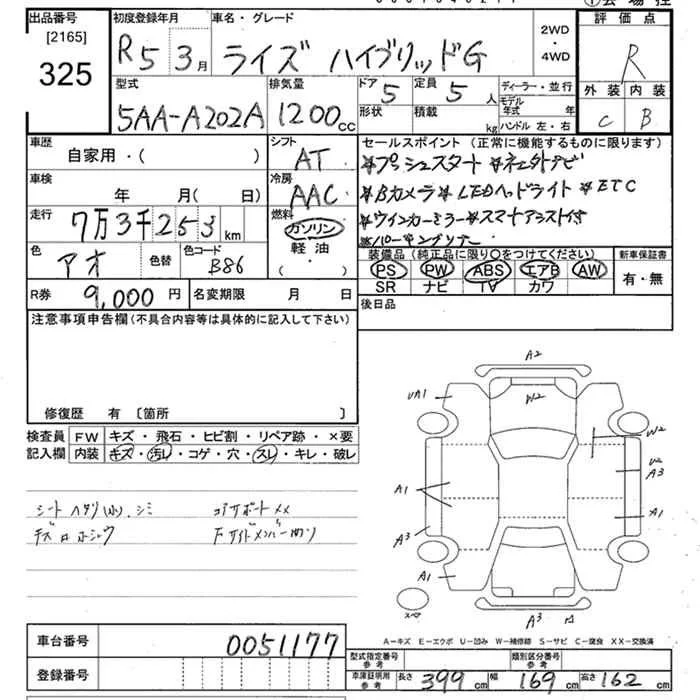 出品番号
[2165]
325
初度登録年月
R5 3月
車名・グレード
ライズ ハイブリッドG
2WD
・
4WD
評価点
R
外装 内装
C B
型式
5AA-A202A
排気量
1200cc
ドア 5
形状
定員 5人
積載 kg
ディーラー・並行
モデル年式 年
ハンドル 左・右
車歴
自家用・( )
シフト
AT
セールスポイント(正常に機能するものに限ります)
*プッシュスタート *ネェ外ナビ
*Bカメラ *LEDヘッドライト *ETC
*ウインカーミラー *スマートアシスト付
*パーキングソナー
車検
年 月( 日)
冷房
AAC
走行
7万3千253km
燃料
ガソリン
軽油
( ・ )
色
アオ
色替
色コード
B86
装備品(純正品に限り〇をつけてください)
PS PW ABS エアB AW
SR ナビ TV カワ
新車保証書
有・無
R券
9,000円
名変期限 月 日
後日品
注意事項申告欄(不具合内容等は具体的に記入して下さい)
修復歴 有〔箇所 〕
検査員記入欄
FW キズ・飛石・ヒビ割・リペア跡・×要
内装 キズ・汚レ・コゲ・穴・スレ・キレ・破レ
シートヘタリ(小)、シミ
コアサポートXX
Fサイドメンバー曲リ
A2
UA1
W2
W2
U2
A3
A1
A1
A3
A1
A3
A-キズ E-エクボ U-凹み W-補修跡 S-サビ C-腐食 XX-交換済
車台番号
0051177
登録番号
型式指定番号
参考
類別区分番号
参考
車庫証明用
参考
長さ 399cm 幅 169cm 高さ 162cm